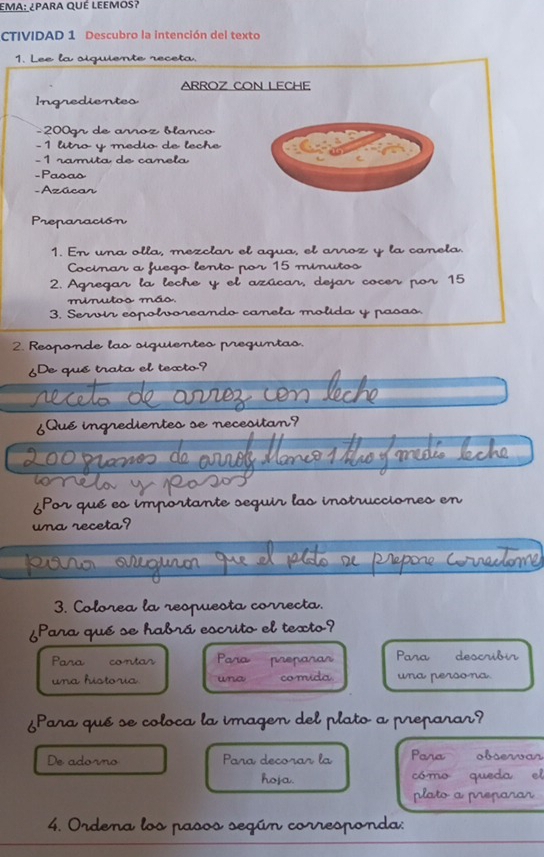 EMA: ¿PARA QUÉ LEEMOS?
CTIVIDAD 1 Descubro la intención del texto
1. Lee la siguiente receta.
ARROZ CON LECHE
Ingredientes
-200gr de arroz blanco
-1 litro y medio de leche
-1 ramita de canela
-Pasas
-Azúcar
Preparación
1. En una olla, mezclar el agua, el arroz y la canela.
Cocinar a fuego lento por 15 minutos
2. Agregar la leche y el azúcar, dejar cocer por 15
minutos más.
3. Servir espolvoreando canela molida y pasas.
2. Responde las siguientes preguntas.
¿De qué trata el texto?
receta de arroz con leche
¿Qué ingredientes se necesitan?
200 gramos de arroz blanco 1 litro y medio leche
canela y pasas
¿Por qué es importante seguir las instrucciones en
una receta?
para asegurar que el plato se prepare correctame
3. Colorea la respuesta correcta.
¿Para qué se habrá escrito el texto?
Para contar una historia.
Para preparar una comida.
Para describir una persona.
¿Para qué se coloca la imagen del plato a preparar?
De adorno
Para decorar la hoja.
Para observar cómo queda el plato a preparar
4. Ordena los pasos según corresponda: